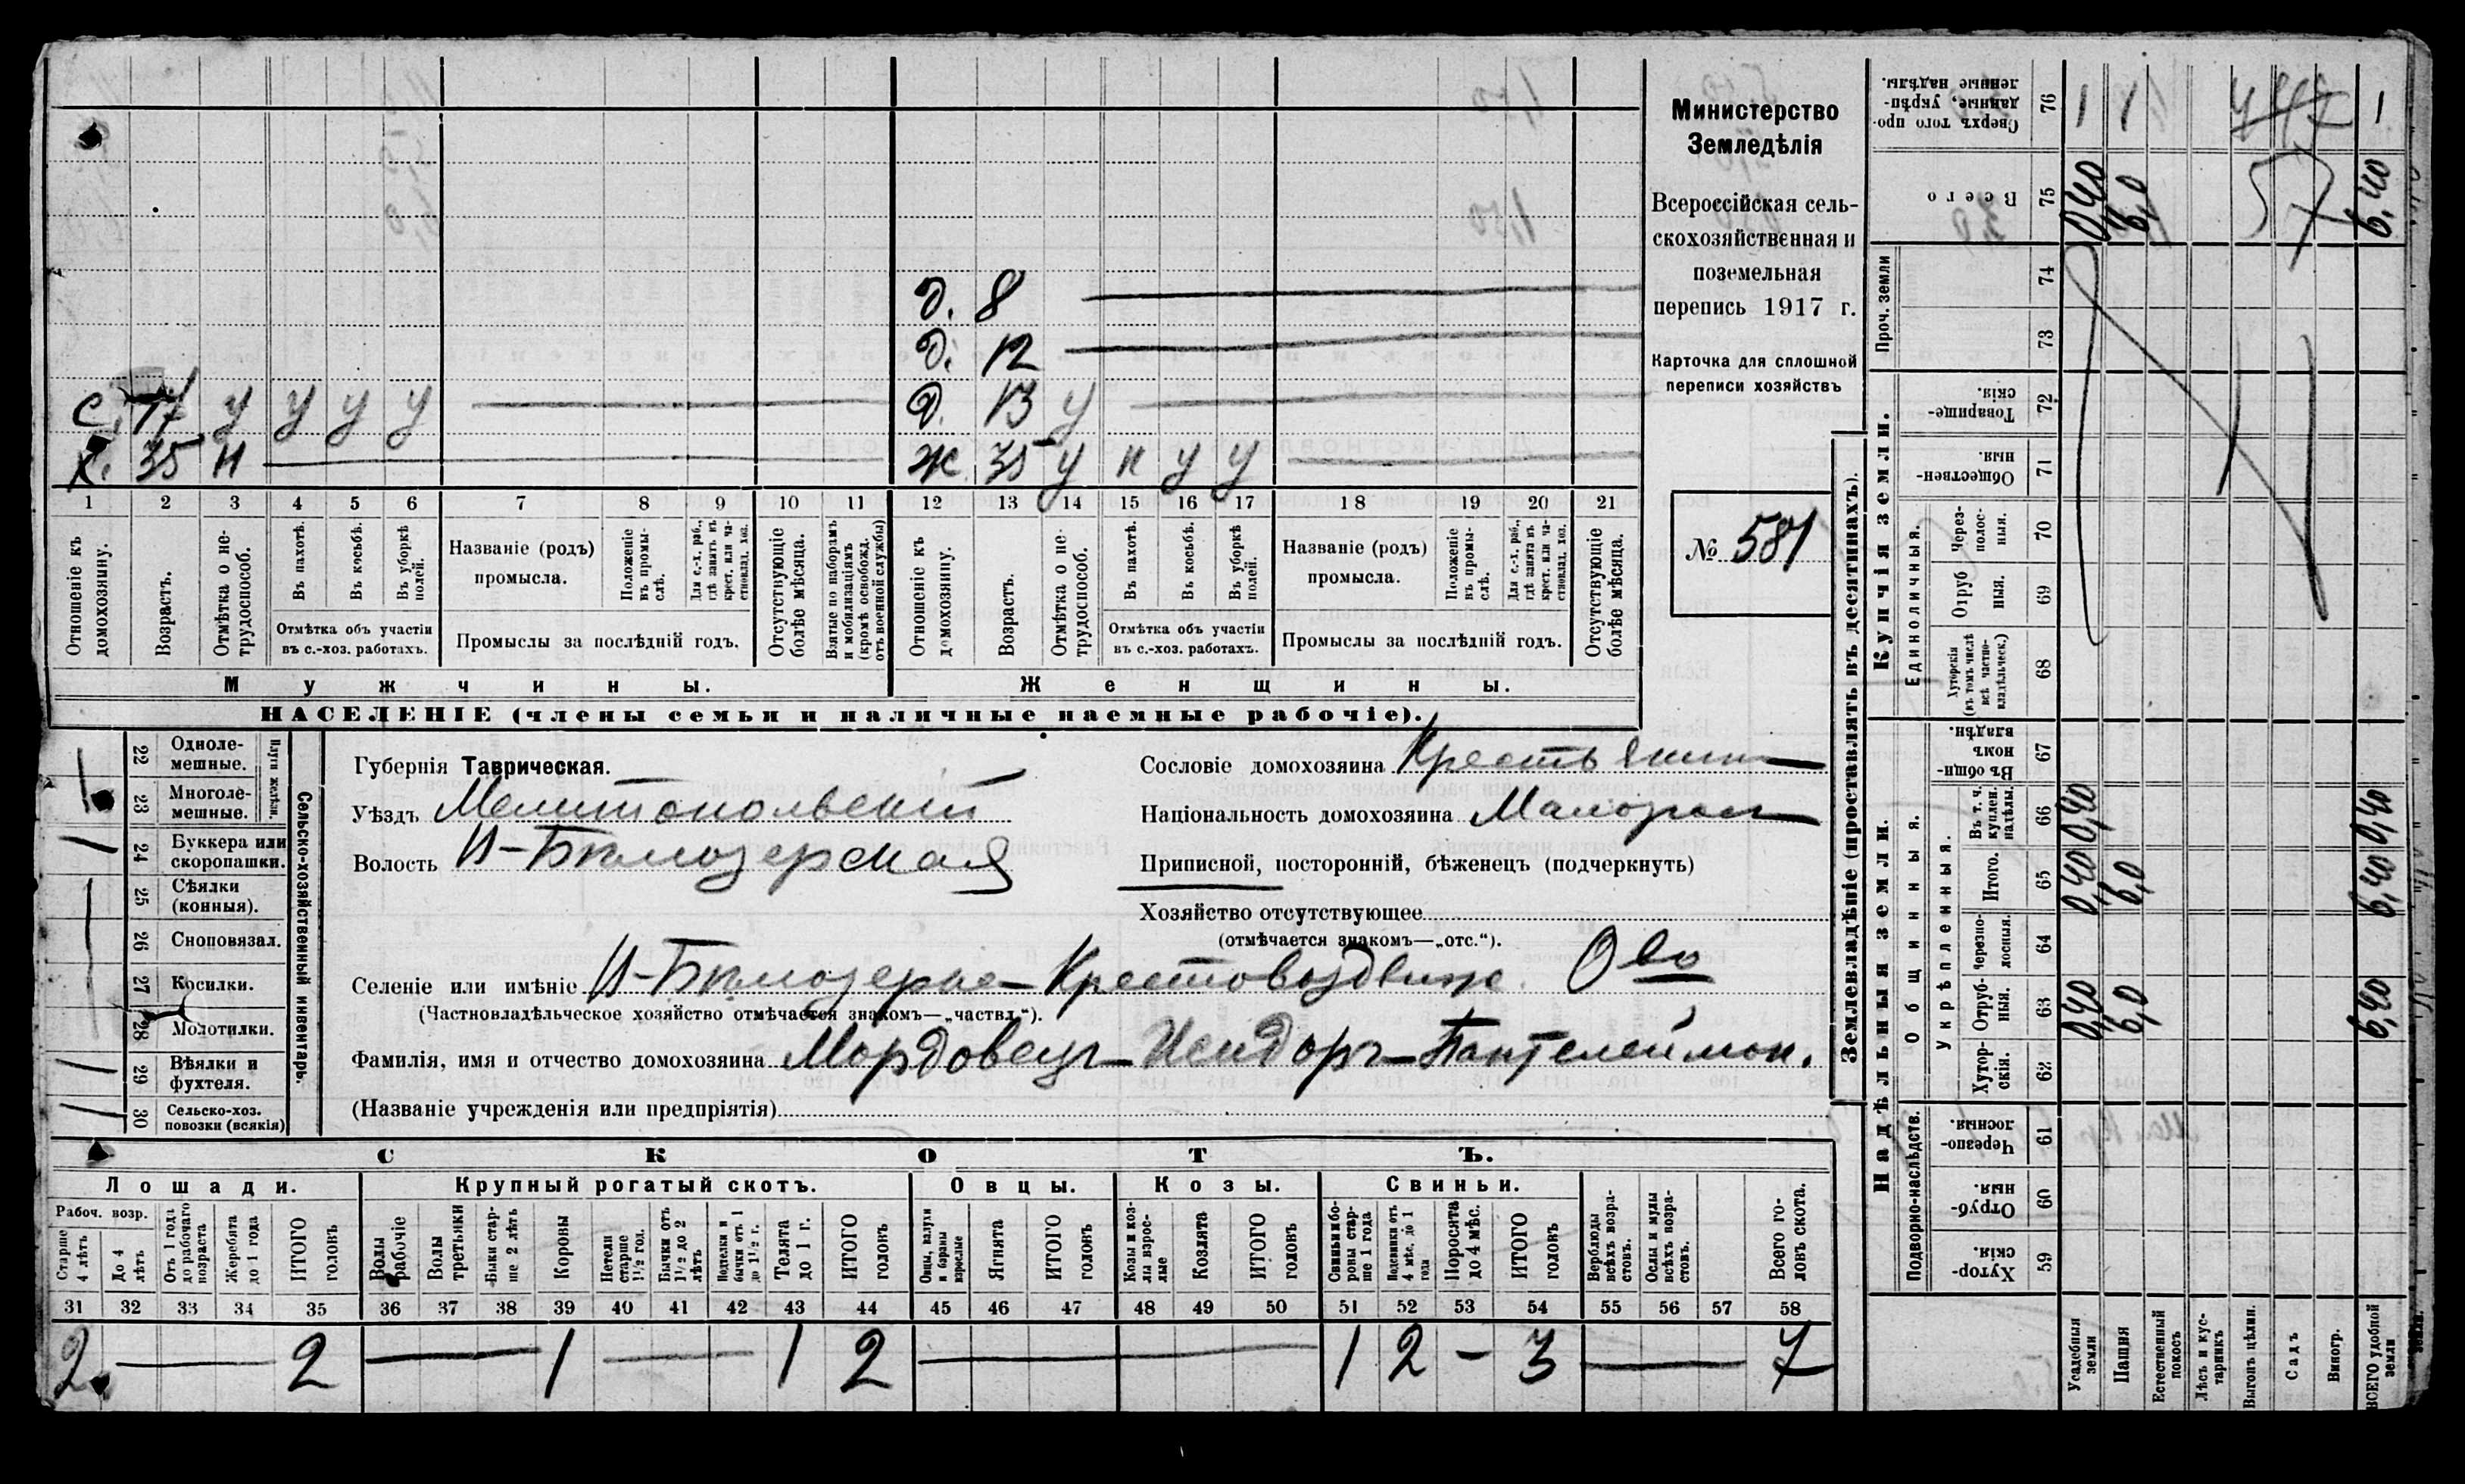 Министерство
Земледѣлія
Всероссійская сель-
скохозяйственная и
поземельная
перепись 1917 г.
Карточка для сплошной
переписи хозяйствъ
№ 581
д. 8
д. 12
с. 17 у у у у
д. 13 у
х. 35 н
ж 35 у н у у
1 2 3 4 5 6 7 8 9 10 11 12 13 14 15 16 17 18 19 20 21
Отношеніе къ домохозяину.
Возрастъ.
Отмѣтка о не-трудоспособ.
Въ пахотѣ.
Въ косьбѣ.
Въ уборкѣ полей.
Отмѣтка объ участіи
въ с.-хоз. работахъ.
Названіе (родъ)
промысла.
Положеніе въ промы-слѣ.
Для с.-х. раб., гдѣ занятъ въ крест. или ча-стновлад. хоз.
Промыслы за послѣдній годъ.
Отсутствующіе болѣе мѣсяца.
Взятые по наборамъ и мобилизаціямъ (кромѣ освобожд. отъ военной службы)
Отношеніе къ домохозяину.
Возрастъ.
Отмѣтка о не-трудоспособ.
Въ пахотѣ.
Въ косьбѣ.
Въ уборкѣ полей.
Отмѣтка объ участіи
въ с.-хоз. работахъ.
Названіе (родъ)
промысла.
Положеніе въ промы-слѣ.
Для с.-х. раб., гдѣ занята въ крест. или ча-стновлад. хоз.
Промыслы за послѣдній годъ.
Отсутствующіе болѣе мѣсяца.
Мужчины.
Женщины.
НАСЕЛЕНІЕ (члены семьи и наличные наемные рабочіе).
Сельско-хозяйственный инвентарь.
22 Одноле-мешные.
23 Многоле-мешные.
24 Буккера или скоропашки.
25 Сѣялки (конныя).
26 Сноповязал.
27 Косилки.
28 Молотилки.
29 Вѣялки и фухтеля.
30 Сельско-хоз. повозки (всякія)
Губернія Таврическая.
Уѣздъ Мелитопольскій
Волость Н-Бѣлозерская
Сословіе домохозяина Крестьянин
Національность домохозяина Малорос
Приписной, посторонній, бѣженец (подчеркнуть)
Хозяйство отсутствующее
(отмѣчается знакомъ—„отс.“).
Селеніе или имѣніе Н-Бѣлозерье-Крестовоздвиж. О во
(Частновладѣльческое хозяйство отмѣчается знакомъ—„частвл.“).
Фамилія, имя и отчество домохозяина Мордовецъ-Исидоръ-Пантелеймон.
(Названіе учрежденія или предпріятія)
СКОТЪ.
Лошади.
Крупный рогатый скотъ.
Овцы.
Козы.
Свиньи.
Рабоч. возр.
Старше 4 лѣтъ
До 4 лѣтъ
Отъ 1 года до рабочаго возраста
Жеребята до 1 года
ИТОГО головъ
Волы рабочіе
Волы третьяки
Быки стар-ше 2 лѣтъ
Коровы
Нетели старше 1½ год.
Бычки отъ 1½ до 2 лѣтъ
Подтелки и бычки отъ 1 до 1½ г.
Телята до 1 г.
ИТОГО головъ
Овцы, валухи и бараны взрослые
Ягнята
ИТОГО головъ
Козы и коз-лы взрос-лые
Козлята
ИТОГО головъ
Свиньи и бо-ровы стар-ше 1 года
Подсвинки отъ 4 мѣс. до 1 года
Поросята до 4 мѣс.
ИТОГО головъ
Верблюды всѣхъ возра-стовъ.
Ослы и мулы всѣхъ возра-стовъ.
Всего го-ловъ скота.
31 32 33 34 35 36 37 38 39 40 41 42 43 44 45 46 47 48 49 50 51 52 53 54 55 56 57 58
2. — 2 — 1 — 1 2 — 1 2 - 3 — 7
Землевладѣніе (проставлять въ десятинахъ).
Купчія земли.
Надѣльныя земли.
Сверхъ того про-данные, укрѣп-ленные надѣлы. 76 1 1 1
Всего 75 0,40 6,0 6,40
57
Проч. земли 74 73
Товарище-скія. 72
Обществен-ныя. 71
Единоличныя.
Через-полос-ныя. 70
Отруб ныя. 69
Хуторскія (въ томъ числѣ всѣ частно-владѣльческ.) 68
Общинныя.
Въ общи-номъ владѣн. 67
Укрѣпленныя.
Въ т. ч. куплен. надѣлы. 66 0,40 0,40
Итого. 65 0,40 6,0 6,40
Черезпо-лосныя. 64
Отруб-ныя. 63 0,40 6,0 6,40
Хутор-скія. 62
Подворно-наслѣдств.
Черезпо-лосныя. 61
Отруб-ныя. 60
Хутор-скія. 59
Усадебныя земли
Пашня
Естественный покосъ
Лѣсъ и кус-тарникъ
Выгонъ цѣлин.
Садъ
Виногр.
ВСЕГО удобной земли